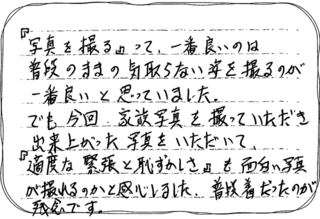 『写真を撮る』って、一番良いのは
普段のままの気取らない姿を撮るのが
一番良いと思っていました。
でも今回 家族写真を撮っていただき
出来上がった写真をいただいて、
『適度な緊張と恥ずかしさ』も面白い写真
が撮れるのかと感心しました。普段着だったのが
残念です。